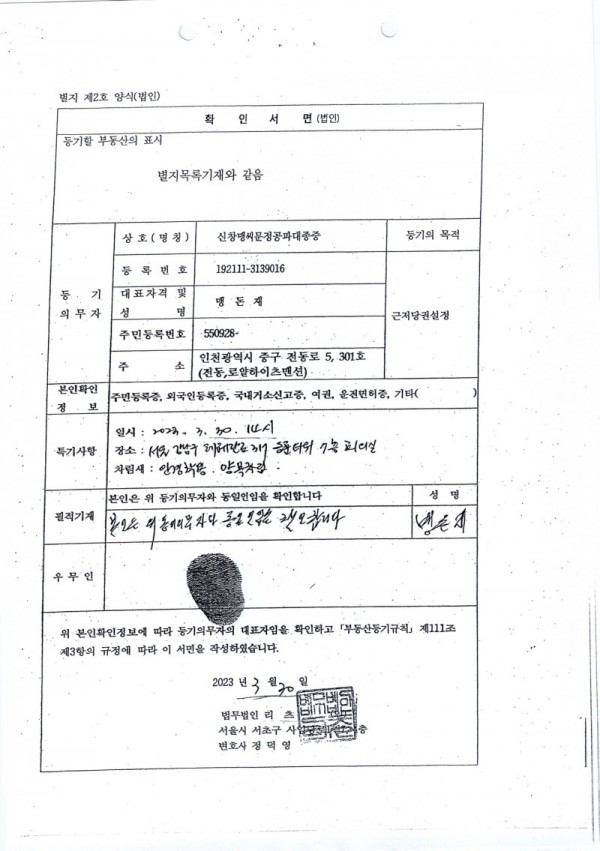 별지 제2호 양식(법인)
확 인 서 면 (법인)
등기할 부동산의 표시
별지목록기재와 같음
등 기 의무자
상 호 ( 명 칭 ) 신창맹씨문정공파대종중 등기의 목적
등 록 번 호 192111-3139016
대표자격 및 성 명 맹 돈 재 근저당권설정
주민등록번호 550928-
주 소 인천광역시 중구 전동로 5, 301호
(전동,로얄하이츠맨션)
본인확인 정 보 주민등록증, 외국인등록증, 국내거소신고증, 여권, 운전면허증, 기타( )
특기사항
일시 : 2023. 3. 30. 14시
장소 : 서울 강남구 테헤란로 317 타워 7층 회의실
차림새 : 안경착용. 양복차림
필적기재 본인은 위 등기의무자와 동일인임을 확인합니다 성 명
본인은 위 등기의무자와 동일인임을 확인합니다 맹돈재
우 무 인
위 본인확인정보에 따라 등기의무자의 대표자임을 확인하고 「부동산등기규칙」 제111조
제3항의 규정에 따라 이 서면을 작성하였습니다.
2023 년 3 월 30 일
법무법인 리 츠
서울시 서초구 층
변호사 정 덕 영